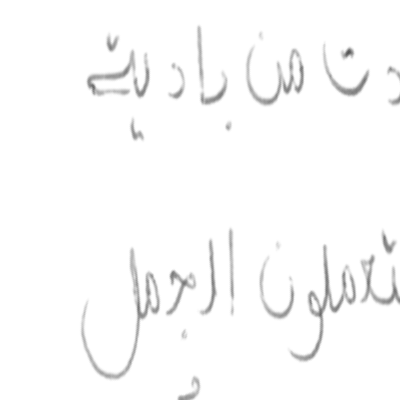 دت من باديتے
تعملون الجمل